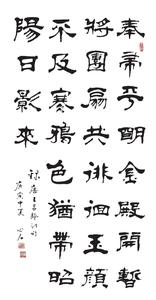 奉帚平明金殿開暫
將團扇共徘徊玉顏
不及寒鴉色猶帶昭
陽日影來
錄唐王昌齡
庚寅